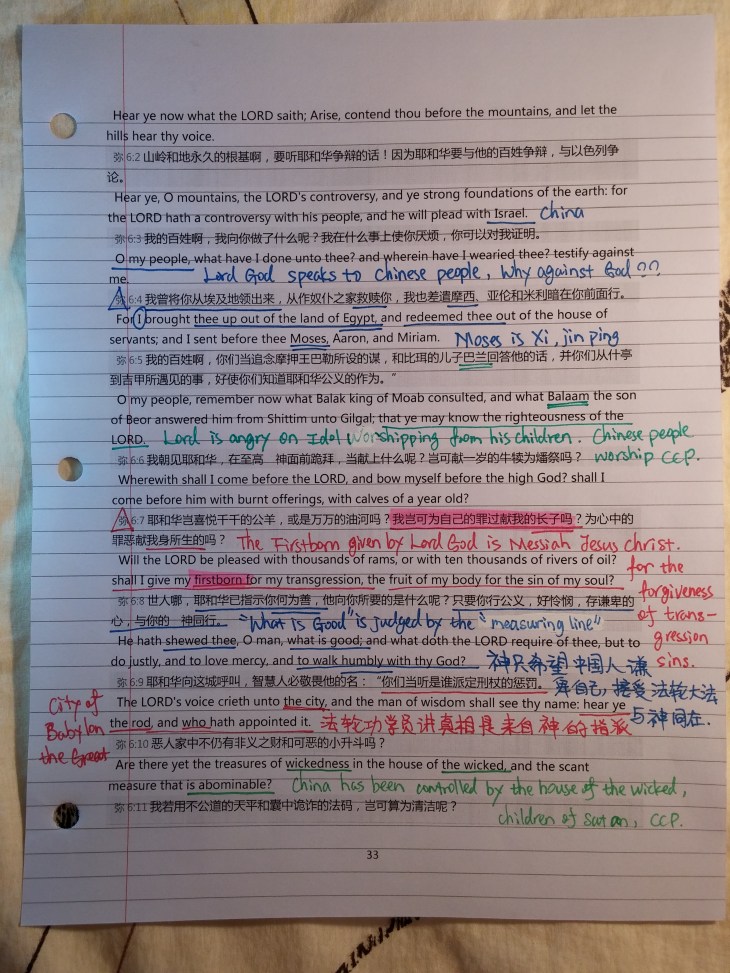 Hear ye now what the LORD saith; Arise, contend thou before the mountains, and let the
hills hear thy voice.
弥 6:2 山岭和地永久的根基啊，要听耶和华争辩的话！因为耶和华要与他的百姓争辩，与以色列争
论。
Hear ye, O mountains, the LORD's controversy, and ye strong foundations of the earth: for
the LORD hath a controversy with his people, and he will plead with Israel. China
弥 6:3 我的百姓啊，我向你做了什么呢？我在什么事上使你厌烦，你可以对我证明。
O my people, what have I done unto thee? and wherein have I wearied thee? testify against
me. Lord God speaks to Chinese people, Why against God??
弥 6:4 我曾将你从埃及地领出来，从作奴仆之家救赎你，我也差遣摩西、亚伦和米利暗在你前面行。
For I brought thee up out of the land of Egypt, and redeemed thee out of the house of
servants; and I sent before thee Moses, Aaron, and Miriam. Moses is Xi, jin ping
弥 6:5 我的百姓啊，你们当追念摩押王巴勒所设的谋，和比珥的儿子巴兰回答他的话，并你们从什亭
到吉甲所遇见的事，好使你们知道耶和华公义的作为。”
O my people, remember now what Balak king of Moab consulted, and what Balaam the son
of Beor answered him from Shittim unto Gilgal; that ye may know the righteousness of the
LORD. Lord is angry on Idol worshipping from his children. Chinese people
弥 6:6 我朝见耶和华，在至高　神面前跪拜，当献上什么呢？岂可献一岁的牛犊为燔祭吗？ worship CCP.
Wherewith shall I come before the LORD, and bow myself before the high God? shall I
come before him with burnt offerings, with calves of a year old?
弥 6:7 耶和华岂喜悦千千的公羊，或是万万的油河吗？我岂可为自己的罪过献我的长子吗？为心中的
罪恶献我身所生的吗？ The Firstborn given by Lord God is Messiah Jesus christ.
Will the LORD be pleased with thousands of rams, or with ten thousands of rivers of oil? for the
shall I give my firstborn for my transgression, the fruit of my body for the sin of my soul? forgiveness
弥 6:8 世人哪，耶和华已指示你何为善，他向你所要的是什么呢？只要你行公义，好怜悯，存谦卑的 of trans-
心，与你的　神同行。 "What is Good" is judged by the "measuring line" gression
He hath shewed thee, O man, what is good; and what doth the LORD require of thee, but to
do justly, and to love mercy, and to walk humbly with thy God? 神只希望中国人谦 sins.
弥 6:9 耶和华向这城呼叫，智慧人必敬畏他的名：“你们当听是谁派定刑杖的惩罚。 卑自己，接受法轮大法
The LORD's voice crieth unto the city, and the man of wisdom shall see thy name: hear ye 与神同在.
City of
Babylon
the Great
the rod, and who hath appointed it. 法轮功学员讲真相是来自神的指派
弥 6:10 恶人家中不仍有非义之财和可恶的小升斗吗？
Are there yet the treasures of wickedness in the house of the wicked, and the scant
measure that is abominable? China has been controlled by the house of the wicked,
弥 6:11 我若用不公道的天平和囊中诡诈的法码，岂可算为清洁呢？ children of satan, CCP.
33